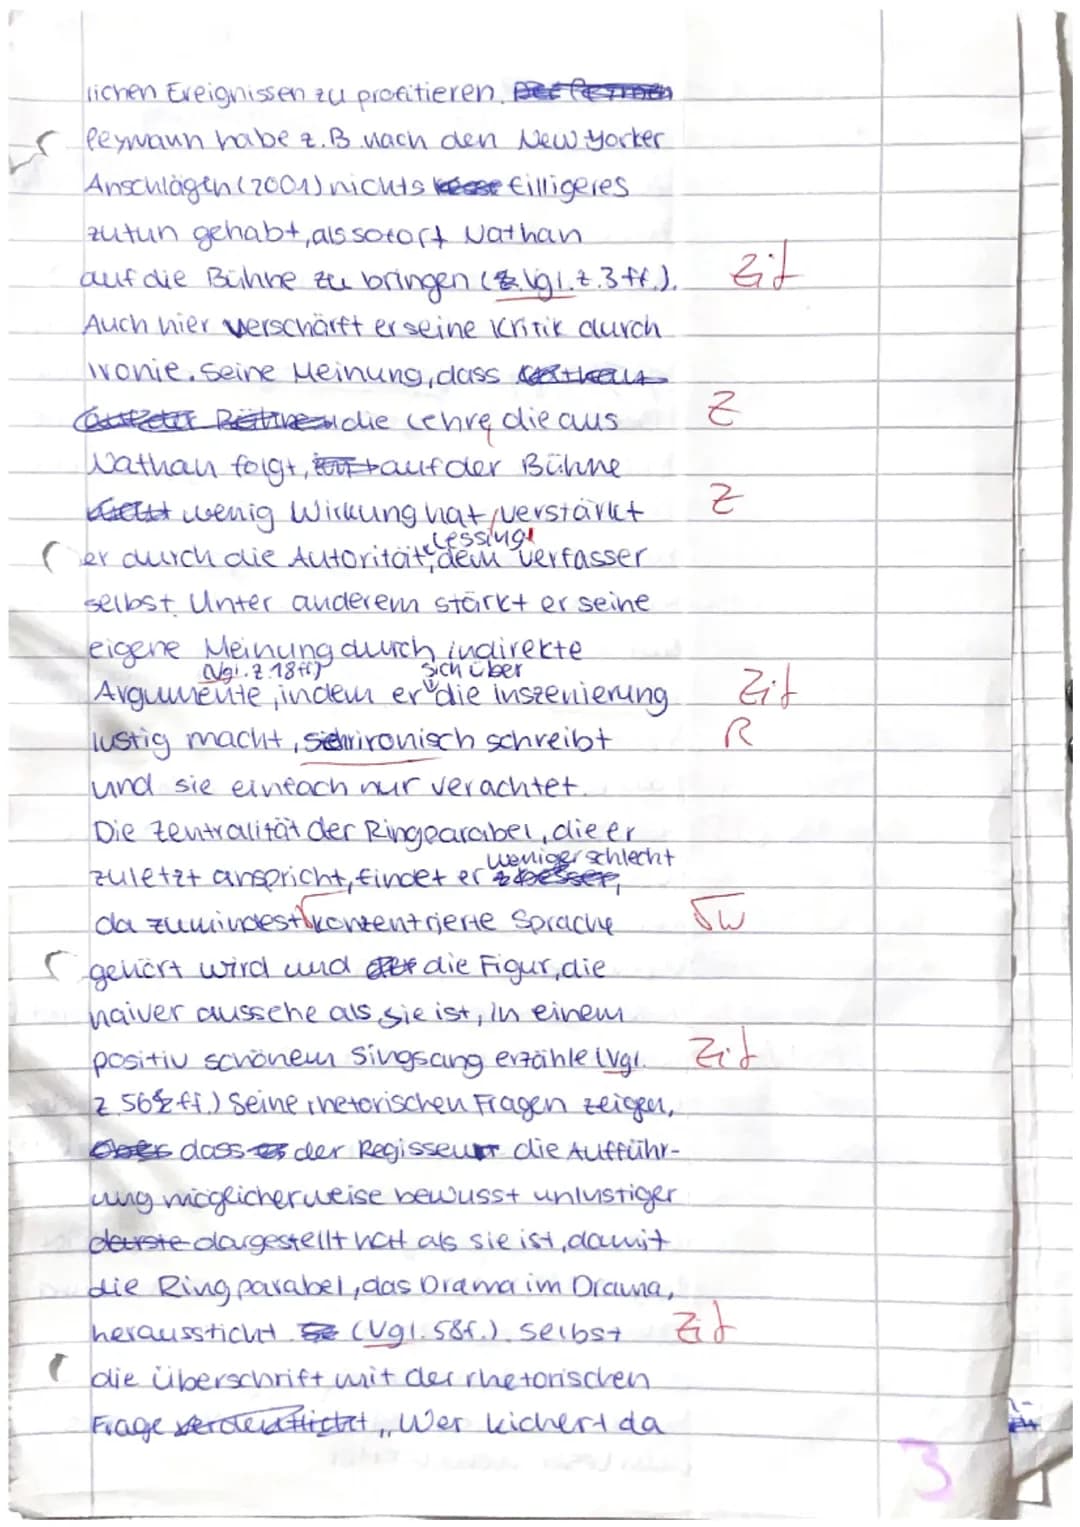 lichen Ereignissen zu profitieren.
Peymann habe z.B. nach den New Yorker
Anschlägen (2001) nichts Eiligeres
zutun gehabt, als sofort Nathan
auf die Bühne zu bringen (Vgl. Z. 3 ff.). Zit
Auch hier verschärft er seine Kritik durch
Ironie. Seine Meinung, dass
die Lehre, die aus Z
Nathan folgt, auf der Bühne
wenig Wirkung hat, verstärkt Z
er durch die Autorität, Lessing, dem Verfasser
selbst. Unter anderem stärkt er seine
eigene Meinung durch indirekte
Argumente (Vgl. Z. 18 ff), indem er sich über die Inszenierung Zit
lustig macht, ironisch schreibt R
und sie einfach nur verachtet.
Die Zentralität der Ringparabel, die er
zuletzt anspricht, findet er weniger schlecht
da zumindest konzentrierte Sprache √W
gehört wird und die Figur, die
naiver aussehe als sie ist, in einem
positiv schönem Singsang erzähle (Vgl. Zit
Z. 56 ff.) Seine rhetorischen Fragen zeigen,
dass der Regisseur die Aufführ-
ung möglicherweise bewusst unlustiger
dargestellt hat als sie ist, damit
die Ringparabel, das Drama im Drama,
heraussticht (Vgl. 58f.). Selbst Zit
die Überschrift mit der rhetorischen
Frage „Wer kichert da
3